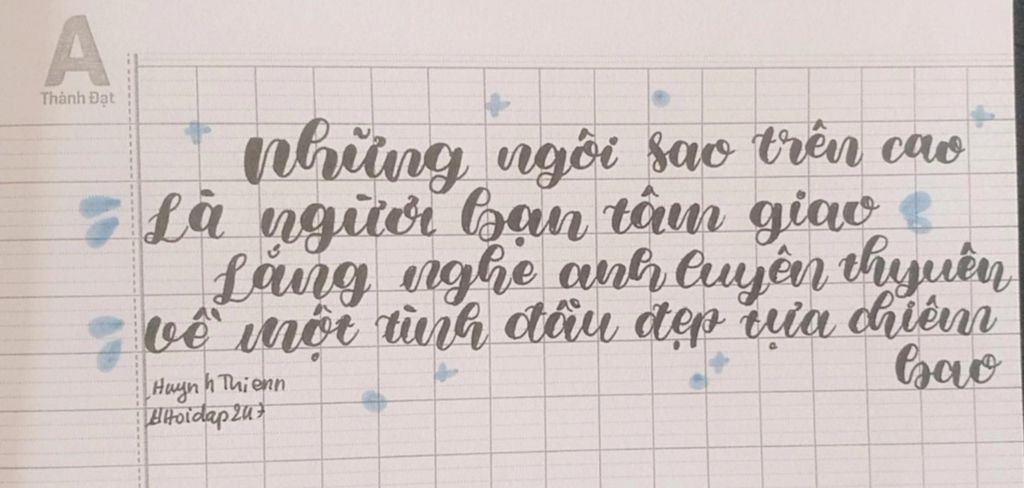 A
Thành Đạt
Những ngôi sao trên cao
Là người bạn tâm giao
Lắng nghe anh luyên thyuên
về một tình đầu đẹp tựa chiêm
bao
Huynh Thienn
#Hoidap247